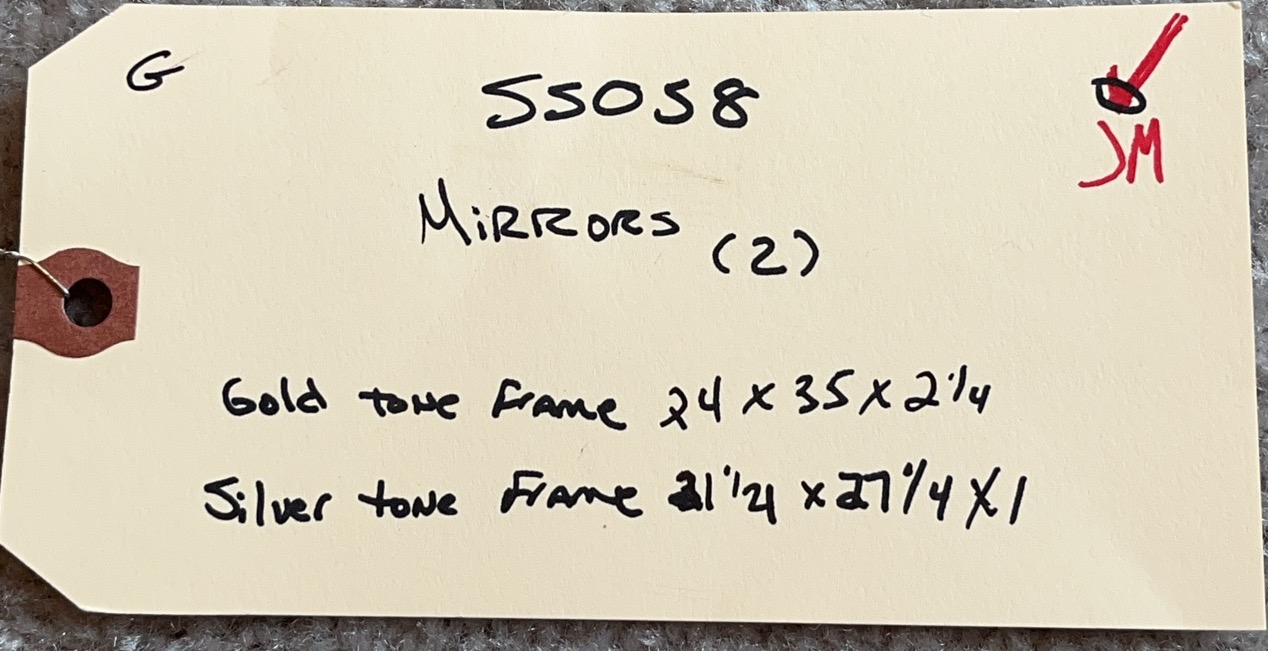 G
55058
JM
MiRRORS (2)
Gold tone Frame 24 x 35 x 2 1/4
Silver tone Frame x 27 1/4 x 1